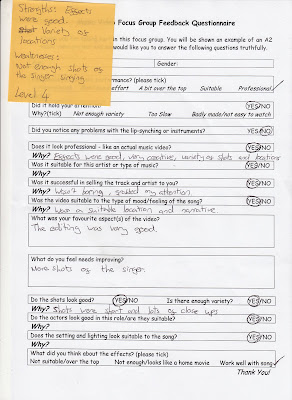 Strengths: Effects
were good.
Variety of
locations
Weaknesses:
Not enough shots of
the singer singing.
Level 4
Focus Group Feedback Questionnaire
focus group. You will be shown an example of an A2
would like you to answer the following questions truthfully.
Gender:
performance? (please tick)
effort A bit over the top Suitable Professional ✓
Did it hold your attention? YES/NO
Why?(tick) Not enough variety Too Slow Badly made/not easy to watch
Did you notice any problems with the lip-synching or instruments? YES/NO
Does it look professional - like an actual music video? YES/NO
Why? Effects were good, very creative, variety of shots and locations
Was it suitable for this artist or type of music? YES/NO
Why?
Was it successful in selling the track and artist to you? YES/NO
Why? Wasn't boring, grabbed my attention.
Was the video suitable to the type of mood/feeling of the song? YES/NO
Why? Was a suitable location and narrative.
What was your favourite aspect(s) of the video?
The editing was very good.
What do you feel needs improving?
More shots of the singer.
Do the shots look good? YES/NO Is there enough variety? YES/NO
Why? Shots were short and lots of close ups
Do the actors look good in this role/are they suitable? YES/NO
Why?
Does the setting and lighting look suitable to the song? YES/NO
Why?
What did you think about the effects? (please tick)
Not suitable/over the top Not enough/looks like a home movie Work well with song ✓
Thank You!